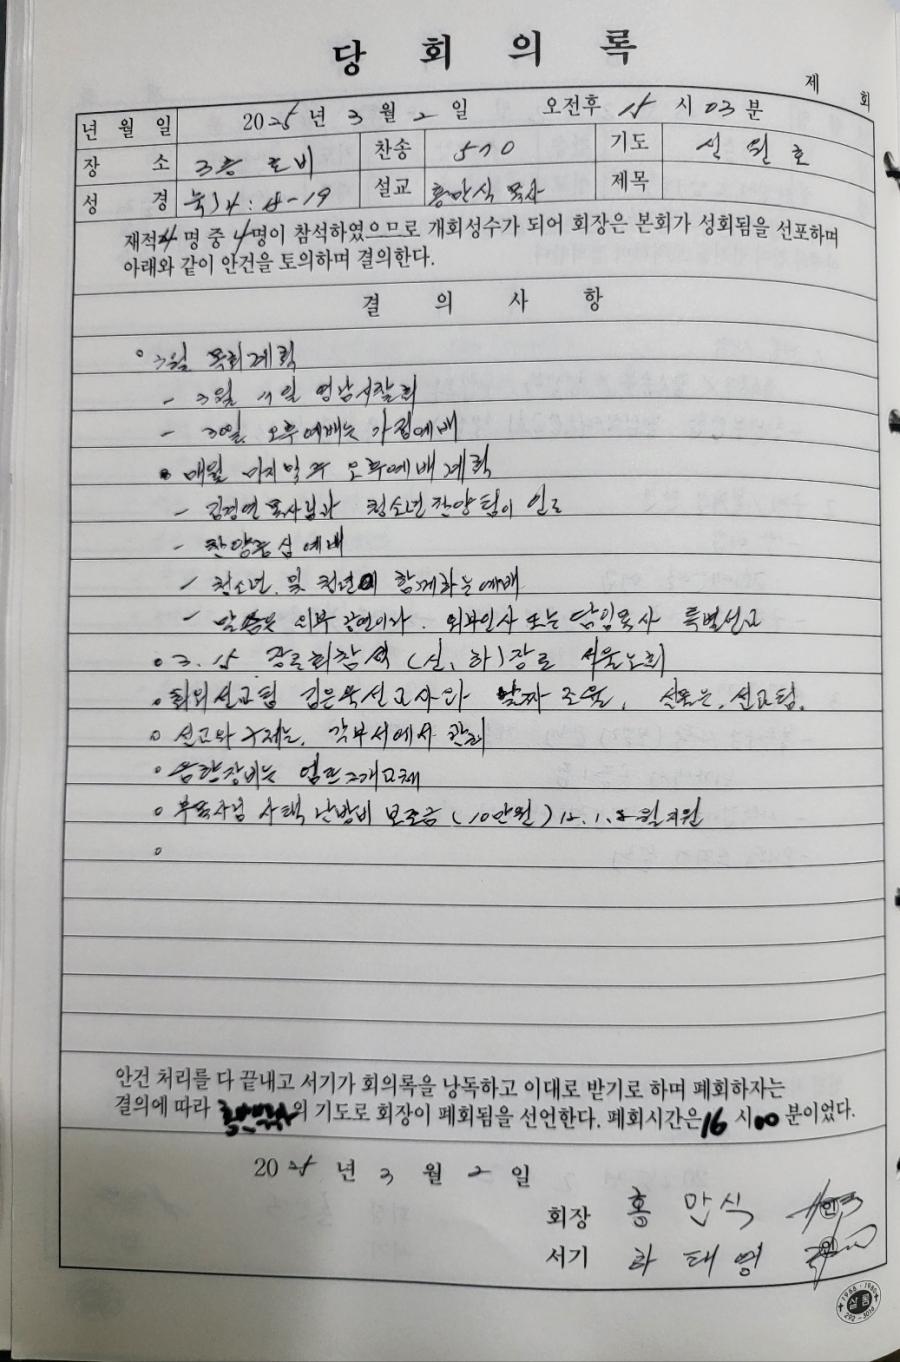 당 회 의 록
제 회
년 월 일 2025 년 3 월 2 일 오전후 15 시 03 분
장 소 3층 로비 찬송 510 기도 신원호
성 경 눅14: -19 설교 홍만식 목사 제목
재적4 명 중 4명이 참석하였으므로 개회성수가 되어 회장은 본회가 성회됨을 선포하며
아래와 같이 안건을 토의하며 결의한다.
결 의 사 항
◦ 3월 목회계획
- 3월 11일 영남시찰회
- 30일. 오후예배는 가정예배
• 매월 마지막주 오후예배 계획
- 김경연 목사님과 청소년 찬양팀이 인도
- 찬양중심 예배
- 청소년. 및 청년이 함께하는 예배
- 말씀은 외부 강연이나. 외부인사 또는 담임목사 특별선교
◦ 3. 15 장로회참석 (신, 하)장로 서울노회
◦ 해외선교팀 김은 선교사와 날짜 조율, 선교팀.
◦ 선교와 구제는. 각부서에서 관리
◦ 음향장비는 앰프2개교체
◦ 부목사님 사택 난방비 보조금 (10만원) 12. 1. 2월 지원
◦
안건 처리를 다 끝내고 서기가 회의록을 낭독하고 이대로 받기로 하며 폐회하자는
결의에 따라 의 기도로 회장이 폐회됨을 선언한다. 폐회시간은16 시00 분이었다.
2025 년 3 월 2 일
회장 홍 만 식 인
서기 하 태 영 인